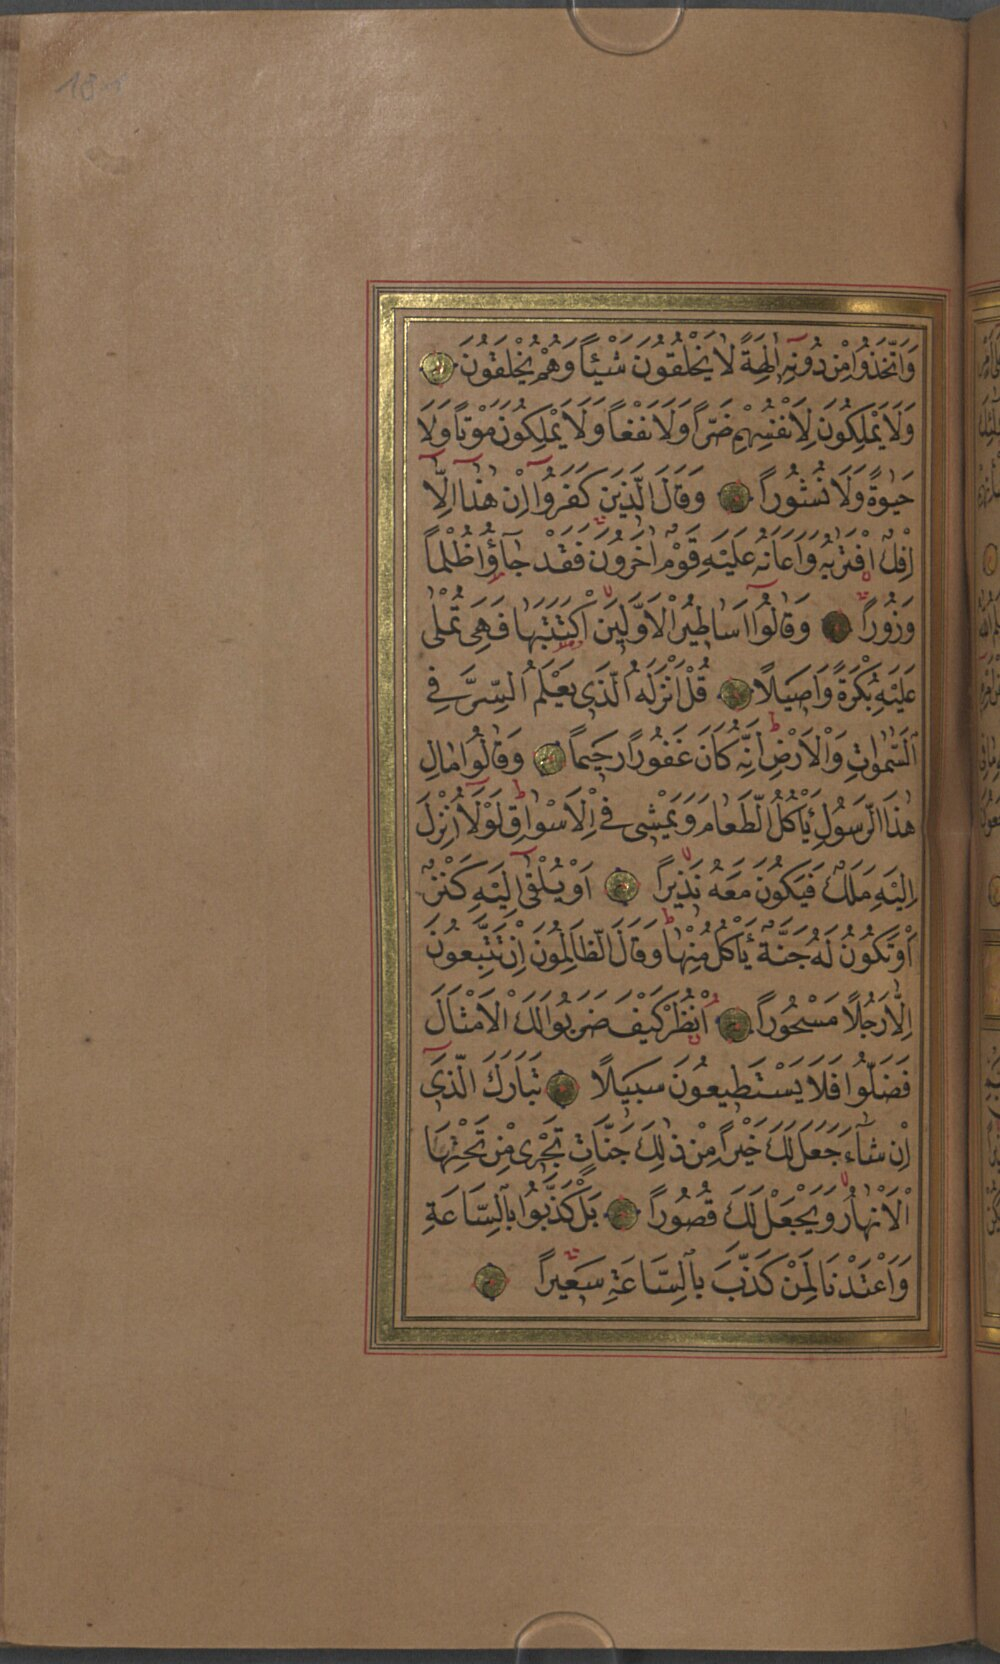 وَاتَّخَذُوا مِنْ دُونِهِ اٰلِهَةً لَا يَخْلُقُونَ شَيْئاً وَهُمْ يُخْلَقُونَ
وَلَا يَمْلِكُونَ لِاَنْفُسِهِمْ ضَرّاً وَلَا نَفْعاً وَلَا يَمْلِكُونَ مَوْتاً وَلَا
حَيٰوةً وَلَا نُشُوراً وَقَالَ الَّذِينَ كَفَرُوا اِنْ هٰذَا اِلَّا
اِفْكٌ افْتَرٰيهُ وَاَعَانَهُ عَلَيْهِ قَوْمٌ اٰخَرُونَ فَقَدْ جَاؤُ ظُلْماً
وَزُوراً وَقَالُوا اَسَاطِيرُ الْاَوَّلِينَ اكْتَتَبَهَا فَهِيَ تُمْلٰى
عَلَيْهِ بُكْرَةً وَاَصِيلاً قُلْ اَنْزَلَهُ الَّذِي يَعْلَمُ السِّرَّ فِي
السَّمٰوَاتِ وَالْاَرْضِ اِنَّهُ كَانَ غَفُوراً رَحِيماً وَقَالُوا مَالِ
هٰذَا الرَّسُولِ يَأْكُلُ الطَّعَامَ وَيَمْشِي فِي الْاَسْوَاقِ لَوْلَا اُنْزِلَ
اِلَيْهِ مَلَكٌ فَيَكُونَ مَعَهُ نَذِيراً اَوْ يُلْقٰى اِلَيْهِ كَنْزٌ
اَوْ تَكُونُ لَهُ جَنَّةٌ يَأْكُلُ مِنْهَا وَقَالَ الظَّالِمُونَ اِنْ تَتَّبِعُونَ
اِلَّا رَجُلاً مَسْحُوراً اُنْظُرْ كَيْفَ ضَرَبُوا لَكَ الْاَمْثَالَ
فَضَلُّوا فَلَا يَسْتَطِيعُونَ سَبِيلاً تَبَارَكَ الَّذِي
اِنْ شَاءَ جَعَلَ لَكَ خَيْراً مِنْ ذٰلِكَ جَنَّاتٍ تَجْرِي مِنْ تَحْتِهَا
الْاَنْهَارُ وَيَجْعَلْ لَكَ قُصُوراً بَلْ كَذَّبُوا بِالسَّاعَةِ
وَاَعْتَدْنَا لِمَنْ كَذَّبَ بِالسَّاعَةِ سَعِيراً